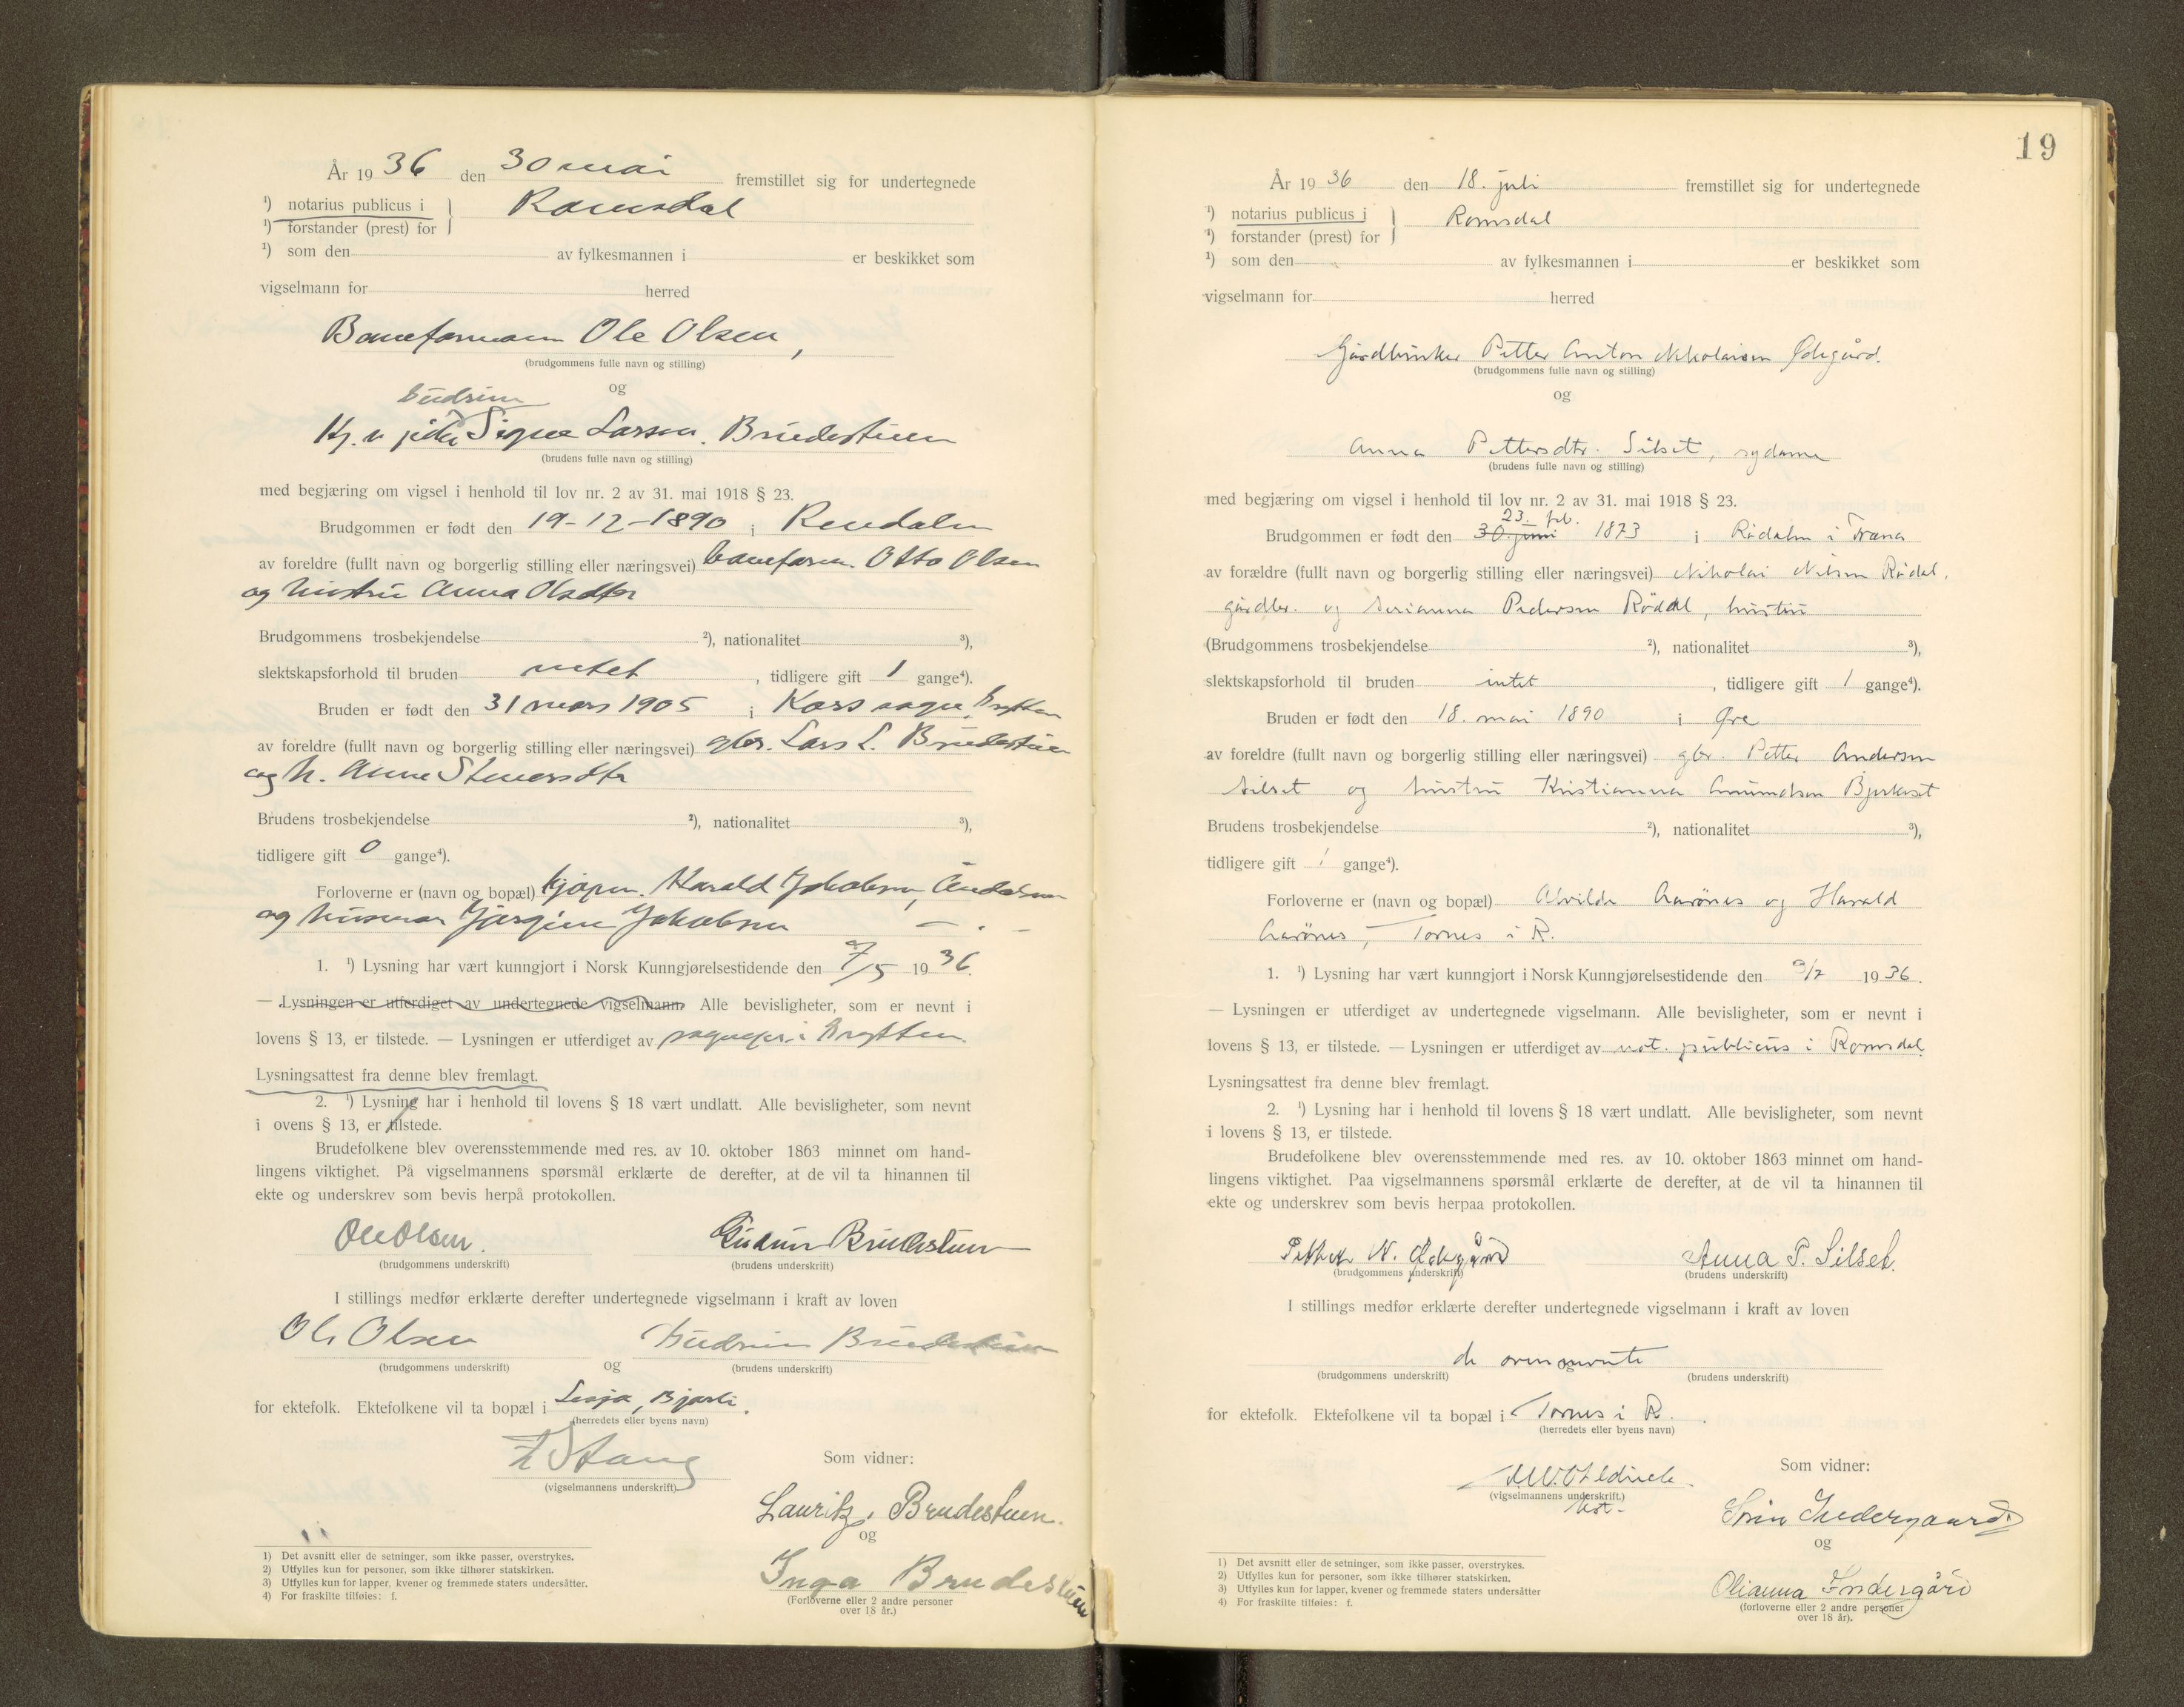 År 1936 den 30 mai fremstillet sig for undertegnede
¹) notarius publicus i
¹) forstander (prest) for
Romsdal
¹) som den av fylkesmannen i er beskikket som
vigselmann for herred
Baneformann Ole Olsen,
(brudgommens fulle navn og stilling)
og
Gudrun
Signe Larsen Brudestuen
(brudens fulle navn og stilling)
med begjæring om vigsel i henhold til lov nr. 2 av 31. mai 1918 § 23.
Brudgommen er født den 19-12-1890 i Rendalen
av foreldre (fullt navn og borgerlig stilling eller næringsvei) baneform. Otto Olsen
og hustru Anna Olsdtr
Brudgommens trosbekjendelse ²), nationalitet ³),
slektskapsforhold til bruden intet, tidligere gift 1 gange⁴).
Bruden er født den 31 mars 1905 i Kors sogn, Grytten
av foreldre (fullt navn og borgerlig stilling eller næringsvei) gbr. Lars L. Brudestuen
og h. Anne Steuersdtr
Brudens trosbekjendelse ²), nationalitet ³),
tidligere gift 0 gange⁴).
Forloverne er (navn og bopæl) kjøpm. Harald Jakobsen, Åndalsnes
og Jørgine Jakobsen — . —
1. ¹) Lysning har vært kunngjort i Norsk Kunngjørelsestidende den 7/5 1936.
— Lysningen er utferdiget av undertegnede vigselmann. Alle bevisligheter, som er nevnt i
lovens § 13, er tilstede. — Lysningen er utferdiget av sognepr. i Grytten.
Lysningsattest fra denne blev fremlagt.
2. ¹) Lysning har i henhold til lovens § 18 vært undlatt. Alle bevisligheter, som nevnt
i ovens § 13, er tilstede.
Brudefolkene blev overensstemmende med res. av 10. oktober 1863 minnet om hand-
lingens viktighet. På vigselmannens spørsmål erklærte de derefter, at de vil ta hinannen til
ekte og underskrev som bevis herpå protokollen.
Ole Olsen. Gudrun Brudestuen
(brudgommens underskrift) (brudens underskrift)
I stillings medfør erklærte derefter undertegnede vigselmann i kraft av loven
Ole Olsen Gudrun Brudestuen
(brudgommens underskrift) og (brudens underskrift)
for ektefolk. Ektefolkene vil ta bopæl i Lesja, Bjorli.
(herredets eller byens navn)
Stang
(vigselmannens underskrift).
Som vidner:
Lauritz Brudestuen.
og
Inga Brudestuen
(Forloverne eller 2 andre personer
over 18 år.)
1) Det avsnitt eller de setninger, som ikke passer, overstrykes.
2) Utfylles kun for personer, som ikke tilhører statskirken.
3) Utfylles kun for lapper, kvener og fremmede staters undersåtter.
4) For fraskilte tilføies: f.
19
År 1936 den 18. juli fremstillet sig for undertegnede
¹) notarius publicus i
¹) forstander (prest) for
Romsdal
¹) som den av fylkesmannen i er beskikket som
vigselmann for herred
Gårdbruker Petter Anton Nikolaisen Ødegård.
(brudgommens fulle navn og stilling)
og
Anna Pettersdtr. Silset, sydame
(brudens fulle navn og stilling)
med begjæring om vigsel i henhold til lov nr. 2 av 31. mai 1918 § 23.
23. feb.
Brudgommen er født den 30. juni 1873 i Rødalen i Fræna
av forældre (fullt navn og borgerlig stilling eller næringsvei) Nikolai Nilsen Rødal,
gårdbr. og Serianna Pedersen Rødal, hustru
(Brudgommens trosbekjendelse ²), nationalitet ³),
slektskapsforhold til bruden intet, tidligere gift 1 gange⁴).
Bruden er født den 18. mai 1890 i Øre
av foreldre (fullt navn og borgerlig stilling eller næringsvei) gbr. Petter Andersen
Silset og hustru Kristianna Amundsen Bjerkeset
Brudens trosbekjendelse ²), nationalitet ³),
tidligere gift 1 gange⁴).
Forloverne er (navn og bopæl) Alvilde Aarønes og Harald
Aarønes, Tornes i R.
1. ¹) Lysning har vært kunngjort i Norsk Kunngjørelsestidende den 9/7 1936.
— Lysningen er utferdiget av undertegnede vigselmann. Alle bevisligheter, som er nevnt i
lovens § 13, er tilstede. — Lysningen er utferdiget av not. publicus i Romsdal.
Lysningsattest fra denne blev fremlagt.
2. ¹) Lysning har i henhold til lovens § 18 vært undlatt. Alle bevisligheter, som nevnt
i lovens § 13, er tilstede.
Brudefolkene blev overensstemmende med res. av 10. oktober 1863 minnet om hand-
lingens viktighet. Paa vigselmannens spørsmål erklærte de derefter, at de vil ta hinannen til
ekte og underskrev som bevis herpaa protokollen.
Petter N. Ødegård Anna P. Silset.
(brudgommens underskrift) (brudens underskrift)
I stillings medfør erklærte derefter undertegnede vigselmann i kraft av loven
de ovennevnte
(brudgommens underskrift) og (brudens underskrift)
for ektefolk. Ektefolkene vil ta bopæl i Tornes i R.
(herredets eller byens navn)
(vigselmannens underskrift.)
Som vidner:
Indergaard.
og
Olianna Indergård
(forloverne eller 2 andre personer
over 18 år).
1) Det avsnitt eller de setninger, som ikke passer, overstrykes.
2) Utfylles kun for personer, som ikke tilhører statskirken.
3) Utfylles kun for lapper, kvener og fremmede staters undersåtter
4) For fraskilte tilføies: f.